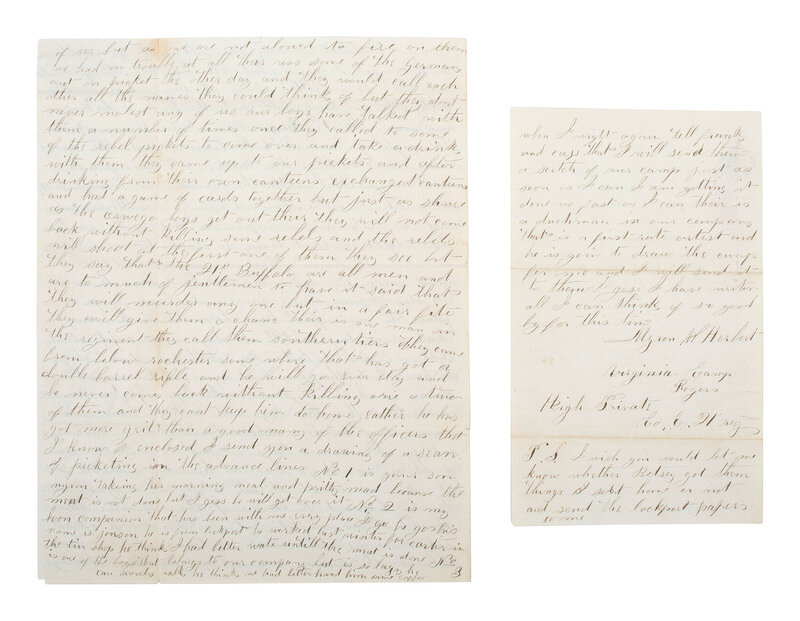 of us but as we are not alowed to fire on them
we had no trouble at all their was some of the germans
out on picket the other day and they would call each
other all the names they could think of but they dont
never molest any of us our boys have talked with
them a number of times once they called to some
of the rebel pickets to come over and take a drink
with them they came up to our pickets and after
drinking from their own canteens exchanged cantens
and had a game of cards together but just as shure
as the oswego boys get out their they will not come
back with it killing some rebels and the rebels
will shoot at the first one of them they see but
they say that the 21st Buffalo are all men and
are to much of gentlemen to have it said that
they will murder any one but in a fair fite
they will give them a chance their is one man in
the regiment they call them southern tiers they came
from below rochester some where that has got a
double barrel rifle and he will go ever day and
he never comes back without killing one or two
of them and they cant keep him to home eather he has
got more grit than a good many of the officers that
I know of enclosed I send you a drawing of a sean
of picketing in the advance lines No 1 is your son
myron taking his morning meal and pritty mad because the
meat is not done but I gess he will get over it No 2 is my
boon companion that has been with me every place I go
name is jonson he is frum lockport he wirked last winter for carter in
the tin shop he thinks I had better wate untill the meat is done No 3
is one of the boys that belongs to our company but is so lazy he
can scarsely walk he thinks we had better hand him some coffee
who I might again tell frank
and cass that I will send them
a scetch of our camp just as
soon as I can I am getting it
done as fast as I can their is
a duchman in our company
that is a first rate artist and
he is goin to draw the camp
for me and I will send it
to them I gess I have writen
all I can think of so good
by for this time
Myron H Herbert
Virginia Camp
Rogers
High Private
Co, C, 21 regm
P S I wish you would let me
know whether Betsey got them
things I sent home or not
and send the lockport papers
to me